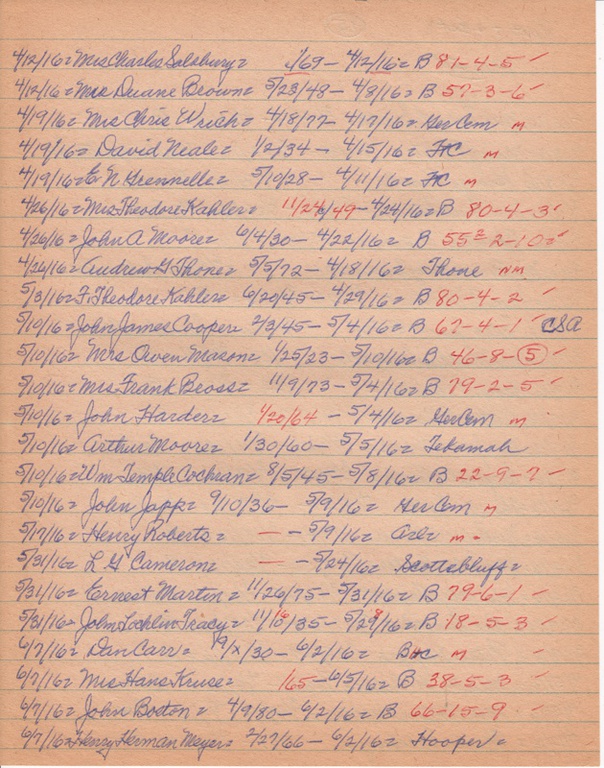 4/12/16= Mrs Charles Salsbury= 1/69 - 4/12/16= B 81-4-5 -
4/12/16= Mrs Duane Brown= 5/23/48 - 4/8/16= B 57-3-6 -
4/19/16= Mrs Chris Wrich= 4/18/77 - 4/17/16= Ger Cem m
4/19/16= David Neale= 1/2/34 - 4/15/16= HC m
4/19/16= E N Grennelle= 5/10/28 - 4/11/16= HC m
4/26/16= Mrs Theodore Kahler= 11/24/49 - 4/24/16= B 80-4-3 -
4/26/16= John A Moore= 6/4/30 - 4/22/16= B 55-2-10 -
4/26/16= Andrew G Thone= 5/5/72 - 4/18/16= Thone NM
5/3/16= F. Theodore Kahler= 6/20/45 - 4/29/16= B 80-4-2 -
5/10/16= John James Cooper= 2/3/45 - 5/4/16= B 67-4-1 - CSA
5/10/16= Mrs Owen Mason= 1/25/23 - 5/10/16= B 46-8-5 -
5/10/16= Mrs Frank Beoss= 11/9/73 - 5/4/16= B 79-2-5 -
5/10/16= John Harder= 1/20/64 - 5/4/16= Ger Cem m
5/10/16= Arthur Moore= 1/30/60 - 5/5/16= Tekamah
5/10/16= Wm Temple Cochran= 8/5/45 - 5/8/16= B 22-9-7 -
5/10/16= John Japp= 9/10/36 - 5/9/16= Ger Cem m
5/17/16= Henry Roberts= — - 5/9/16= m -
5/31/16= L G Cameron= — - 5/24/16= Scottsbluff=
5/31/16= Ernest Martin= 11/26/75 - 5/31/16= B 79-6-1 -
5/31/16= John Lochlin Tracy= 11/16/35 - 5/28/16= B 18-5-3 -
6/7/16= Dan Carr= 9/x/30 - 6/2/16= m
6/7/16= Mrs Hans Kruse= /65 - 6/5/16= B 38-5-3 -
6/7/16= John Boston= 4/9/80 - 6/2/16= B 66-15-9 -
6/7/16= Henry Herman Meyer= 2/27/66 - 6/2/16= Hooper= -